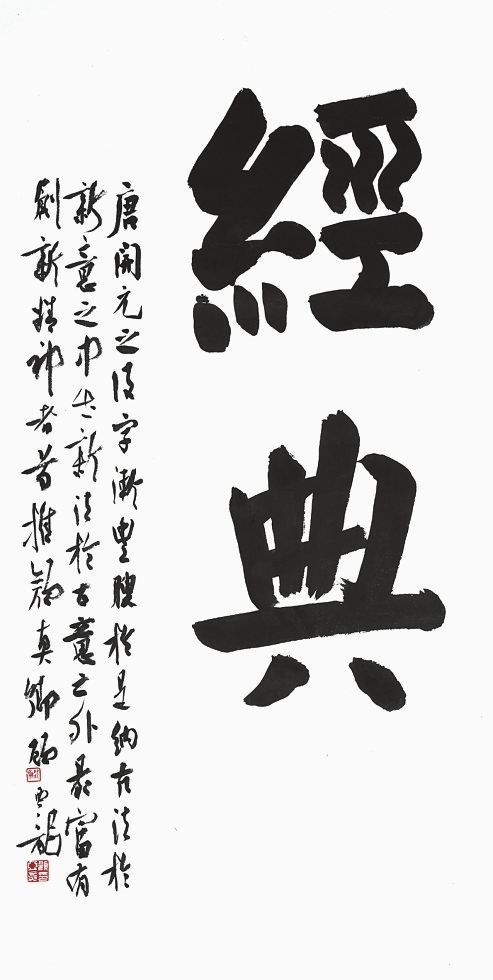 經典
唐開元之後字漸豐腴於是納古法於
新意之中生新法於古意之外最富有
創新精神者首推顏真卿
云龍